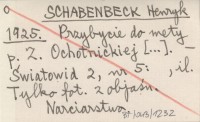 SCHABENBECK Henryk
1925. Przybycie do mety
p. Z. Ochotnickiej [...]. –
Światowid 2, nr 5: , il.
Tylko fot. z objaśn.
Narciarstwo